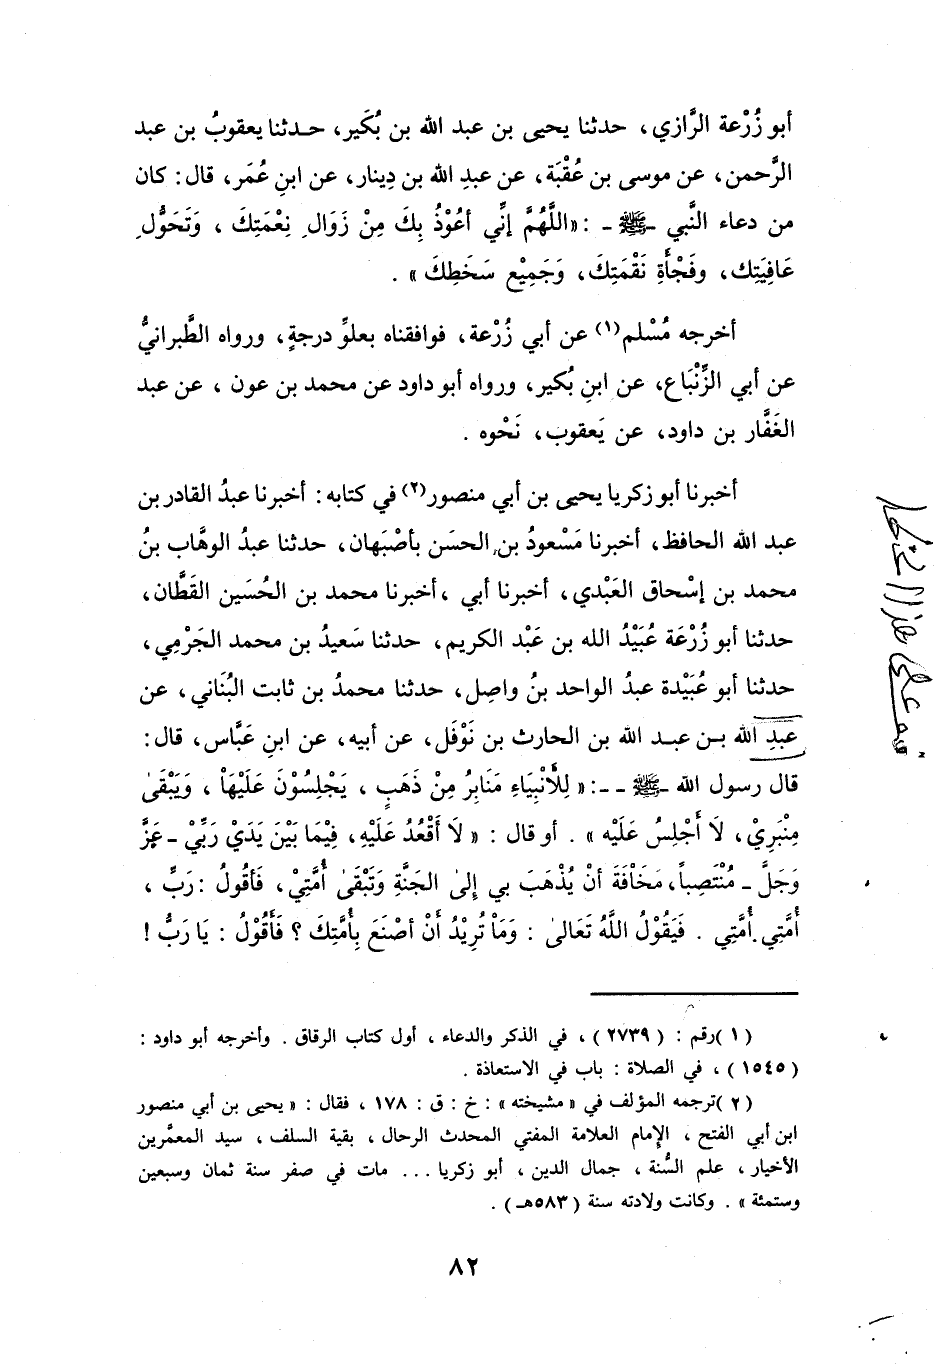 أبو زُرْعة الرَّازي، حدثنا يحيى بن عبد الله بن بُكَير، حـدثنا يعقوبُ بن عبد
الرَّحمن، عن موسى بن عُقْبَة، عن عبدِ الله بن دِينار، عن ابنِ عُمَر، قال: كان
من دعاء النَّبي -ﷺ- : «اللَّهُمَّ إنِّي أعُوْذُ بِكَ مِنْ زَوَالِ نِعْمَتِكَ ، وَتَحَوُّلِ
عَافِيَتِك، وفَجْأةِ نَقْمَتِكَ، وَجَمِيْعِ سَخَطِكَ» .
أخرجه مُسْلم(١) عن أبي زُرْعة، فوافقناه بعلوِّ درجةٍ، ورواه الطَّبرانيُّ
عن أبي الزِّنْبَاع، عن ابنِ بُكير، ورواه أبو داود عن محمد بن عون ، عن عبد
الغَفَّار بن داود، عن يَعقوب، نَحْوه .
أخبرنا أبو زكريا يحيى بن أبي منصور(٢) في كتابه: أخبرنا عبدُ القادر بن
عبد الله الحافظ، أخبرنا مَسْعودُ بن الحسَن بأصْبَهان، حدثنا عبدُ الوهَّاب بنُ
محمد بن إسْحاق العَبْدي، أخبرنا أبي ،أخبرنا محمد بن الحُسَين القَطَّان،
حدثنا أبو زُرْعَة عُبَيْدُ الله بن عَبْد الكريم، حدثنا سَعيدُ بن محمد الجَرْمي،
حدثنا أبو عُبَيْدة عبدُ الواحد بنُ واصِل، حدثنا محمدُ بن ثابت البُنَاني، عن
عبَدِ الله بـن عبـد الله بن الحارث بن نَوْفَل، عن أبيه، عن ابنِ عَبَّاس، قال:
قال رسول الله -ﷺ- -: « لِلأَنْبِيَاءِ مَنَابِرُ مِنْ ذَهَبٍ ، يَجْلِسُوْنَ عَلَيْهَاْ ، وَيَبْقَىٰ
مِنْبَرِيْ، لَا أَجْلِسُ عَلَيْه» . أو قال : « لَا أقْعُدُ عَلَيْهِ، فِيْمَا بَيْنَ يَدَيْ رَبِّيْ - عَزَّ
وَجَلَّ - مُنْتَصِباً، مَخَاْفَةَ أنْ يُذْهَبَ بي إِلىٰ الجَنَّةِ وَتَبْقَىٰ أُمَّتِيْ، فَأقُولُ :رَبِّ ،
أُمَّتِي.أُمَّتِي . فَيَقُوْلُ اللَّهُ تَعَالىٰ : وَمَاْ تُرِيْدُ أَنْ أصْنَعَ بِأُمَّتِكَ ؟ فَأَقُوْلُ : يَا رَبُّ !
(١)رقم : (٢٧٣٩) ، في الذكر والدعاء ، أول كتاب الرقاق . وأخرجه أبو داود :
(١٥٤٥) ، في الصلاة : باب في الاستعاذة .
(٢)ترجمه المؤلف في «مشيخته» : خ : ق : ١٧٨ ، فقال : «يحيى بن أبي منصور
ابن أبي الفتح ، الإمام العلامة المفتي المحدث الرحال ، بقية السلف ، سيد المعمَّرين
الأخيار ، علم السُّنة ، جمال الدين ، أبو زكريا ... مات في صفر سنة ثمان وسبعين
وستمئة» . وكانت ولادته سنة (٥٨٣هـ) .
٨٢